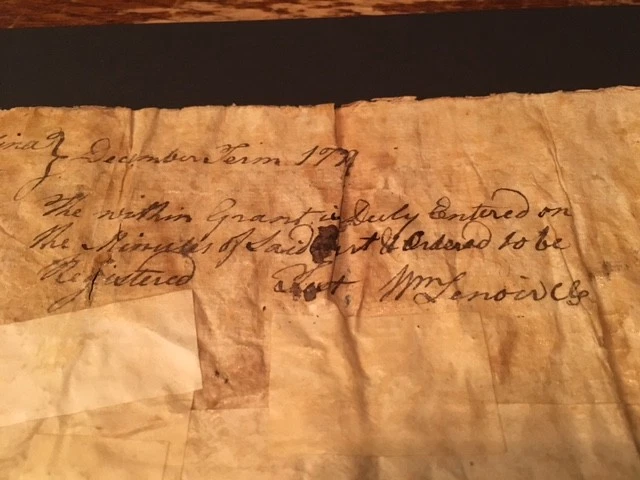 December Term 177
The within Grant is Duly Entered on
the Minutes of Said Court & Ordered to be
Registered Test Wm Lenoir Clk